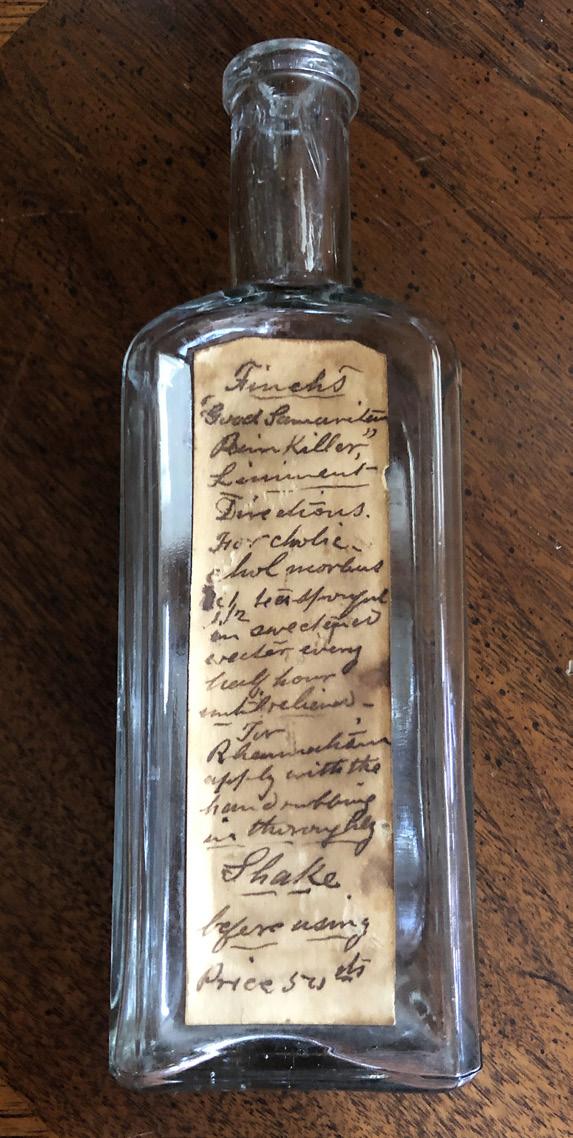 Finch's
"Good Samaritan
Pain Killer"
Liniment
Directions.
For cholic
chol morbus
1/2 teaspoonful
in sweetened
water every
half hour
until relieved -
For
Rheumatism
apply with the
hand rubbing
in thoroughly
Shake
before using
Price 50 cts